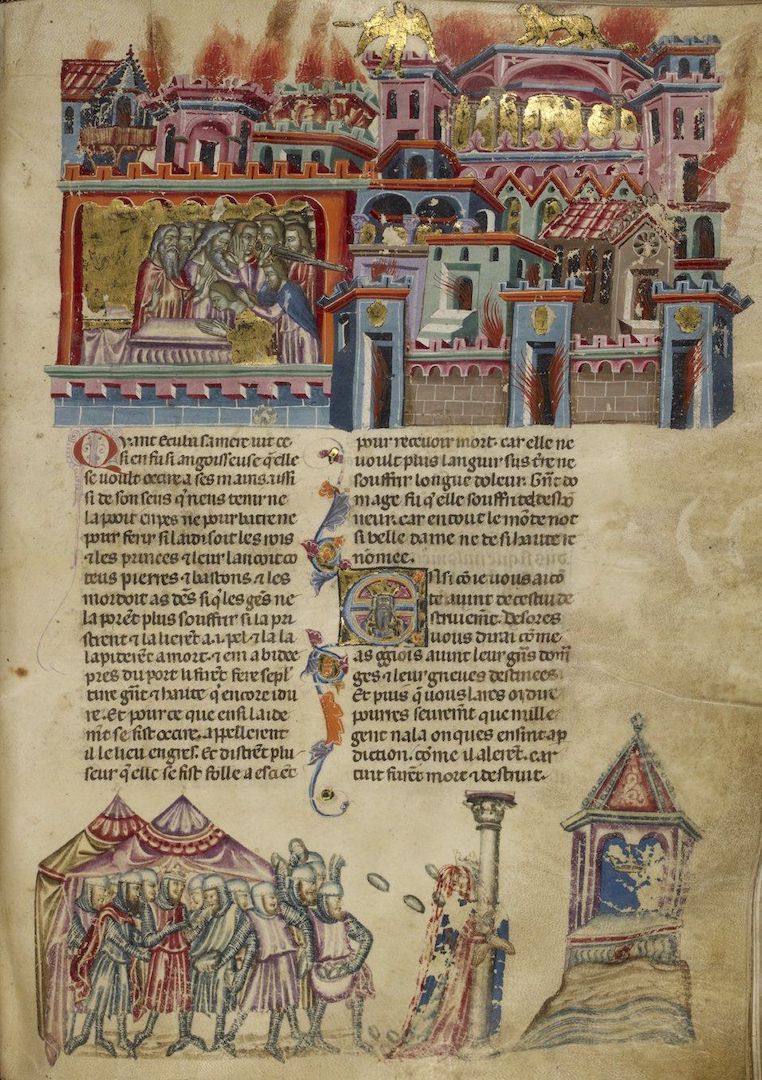 Qvant ecuba sa mere vit ce
si en fu si angoisseuse q̄ elle
se voult occire a ses mains. issi
si de son sens q̄ nens tenir ne
la pooit en pes ne pour batre ne
pour ferir. si laidisoit les rois
⁊ les princes ⁊ leur lancoit co
teus pierres ⁊ bastons. ⁊ les
mordoit as dēs si q̄ les gēs ne
la porēt plus souffrir. si la pri
strent ⁊ la lierēt a .i. pel ⁊ la la
lapiderēt a mort. ⁊ em abidee
pres du port li firēt fere sepl̄
ture gr̄nt ⁊ haute q̄ encore i du
re. Et pour ce que ensi laide
mēt se fist occire. appelerent
il le lieu engres. Et distrēt plu
seur q̄ elle se fist folle a esciēt
pour recevoir mort. car elle ne
voult plus languir sus t̄re ne
souffrir longue doleur. Gr̄nt do
mage fu q̄ elle souffri tel desho
neur. car en tout le mōde not
si belle dame ne de si haute re
nomee.
Ensi cōe ie vous ai cō
te avant de cestui de
struiemēt. Desores
vous dirai cōme
as ḡgiois avint leur gr̄ns dom̄
ges ⁊ leur grieues destinees.
Et puis q̄ vous lares oi dire
pourres seuremēt que nulle
gent nala onques ensint a p̄
dicion. cōme il alerēt. car
tuit furēt mort ⁊ destruit.